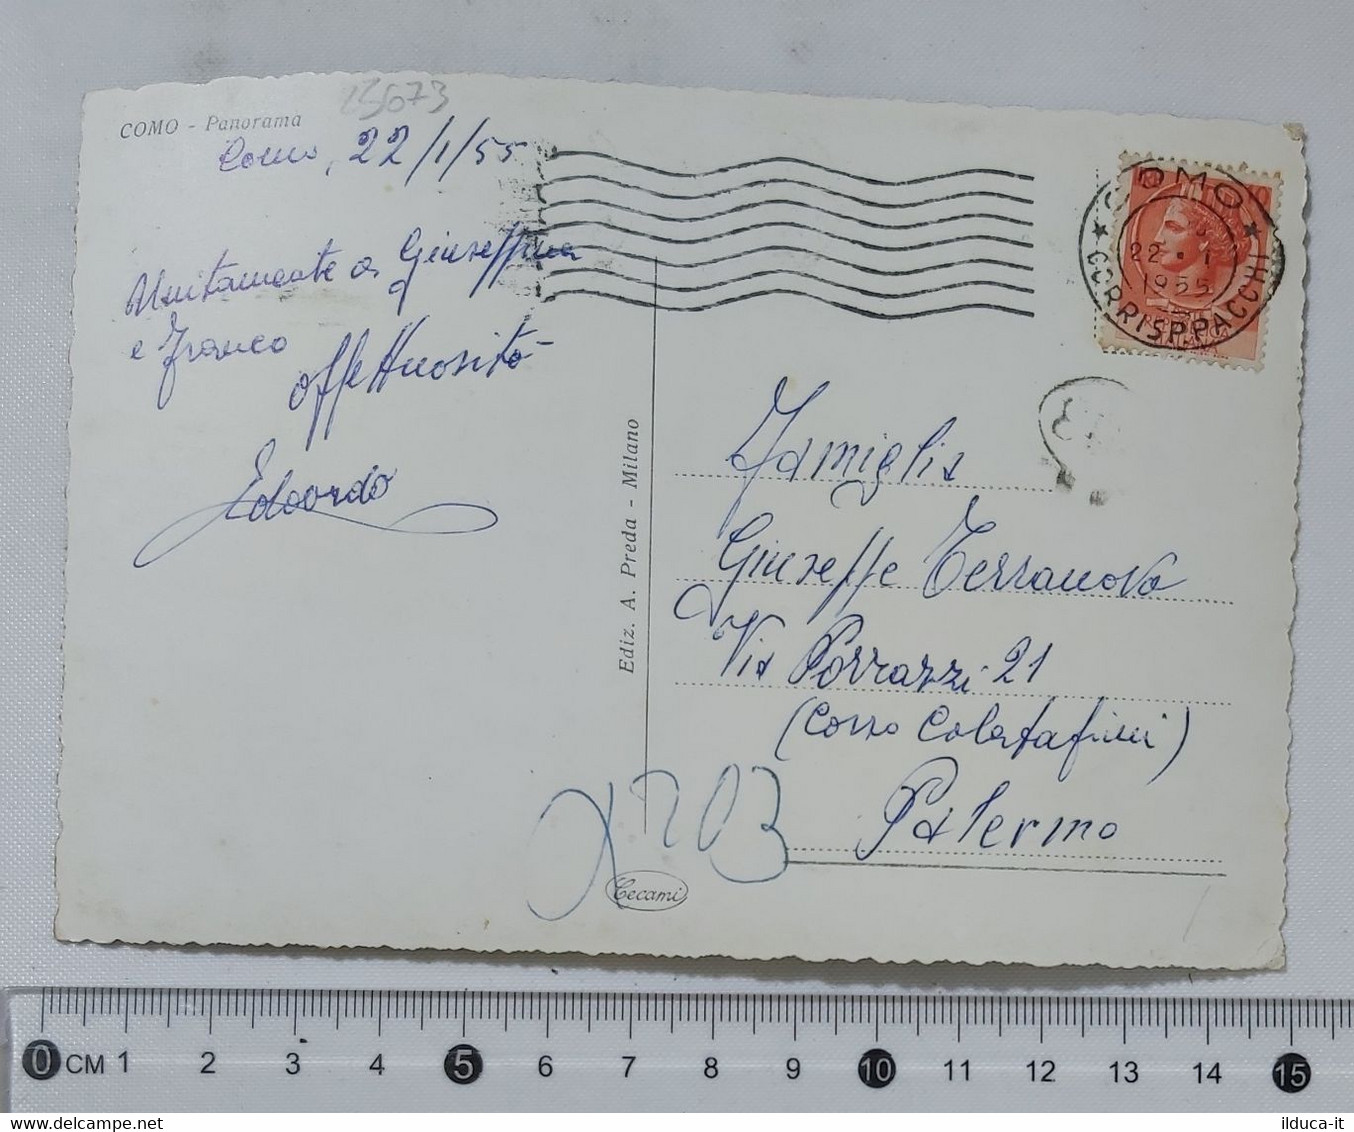 15673
COMO - Panorama
Como, 22/1/55
Unitamente a Giuseppina
e Franco
affettuosità
Edoardo
Ediz. A. Preda - Milano
COMO
22 · 1
1955
CORRISP. PACCHI
Famiglia
Giuseppe Terranova
Via Porrazzi 21
(Corso Calatafimi)
Palermo
203
Cecami
0 CM 1 2 3 4 5 6 7 8 9 10 11 12 13 14 15
ilduca-it